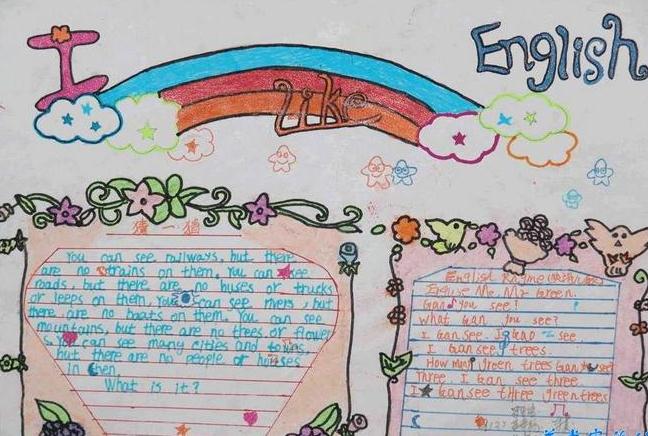 I like English
猜一猜
You can see railways, but there
are no trains on them. You can see
roads, but there are no buses or trucks
or jeeps on them. You can see rivers, but
there are no boats on them. You can see
mountains, but there are no trees or flower
s. You can see many cities and towns,
but there are no people or houses
in then.
What is it?
English Rhyme
Excuse Me Mr Green.
Can you see?
What can you see?
I can see. I can see
I can see trees.
How many green trees can you see
Three. I can see three
I can see three green trees